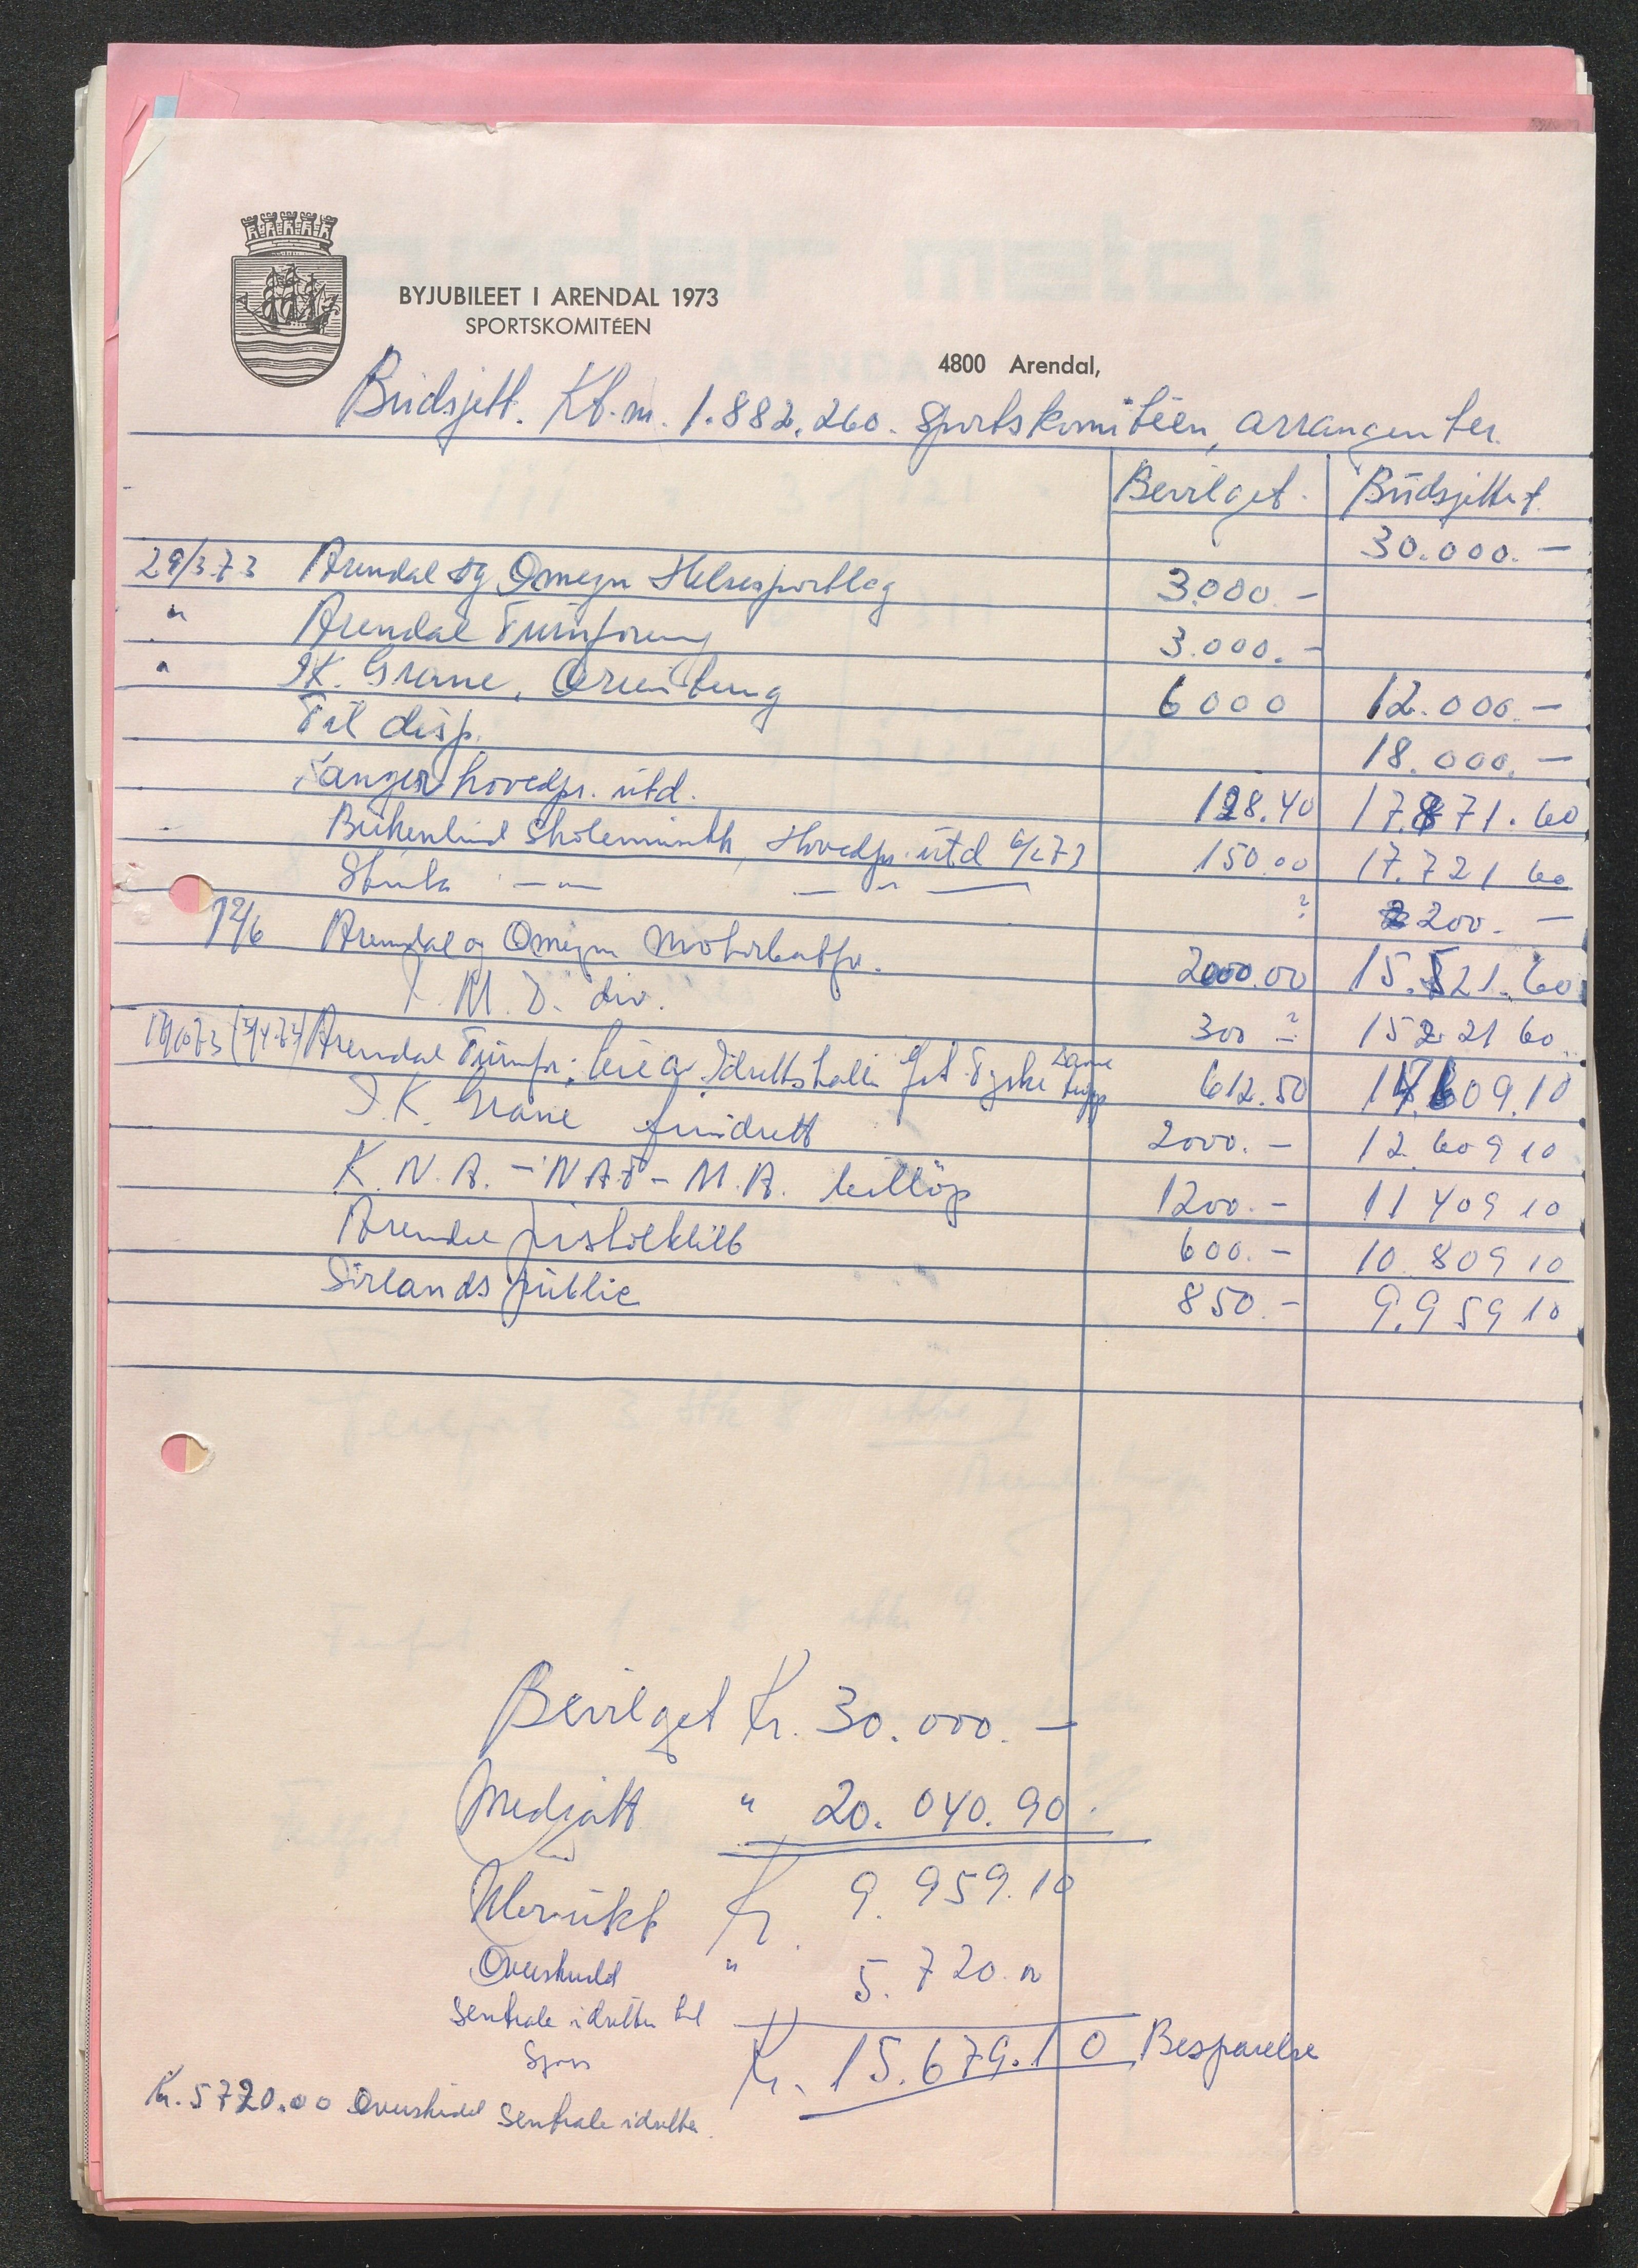 BYJUBILEET I ARENDAL 1973
SPORTSKOMITÉEN
4800 Arendal,
Budsjett. Kt.m. 1.882.260. Sportskomitéen, arrangenter.
Bevilget. Budsjettert.
30.000.-
29/3.73 Arendal og Omegn Helsesportlag 3.000.-
" Arendal Turnforening 3.000.-
" I.K. Grane, Orientering 6000 12.000.-
Til disp. 18.000.-
hovedpr. utd. 128.40 17.871.60
Birkenlund Skolemusikk, Hovedpr. utd 150.00 17.721 60
Stinta -"- -"- ? 200.-
12/6 Arendal og Omegn Motorbåtfor. 2000.00 15.521.60
I.M.D. div. 300 ? 15221 60
Arendal Turnfor; leie av Idrettshallen Tyske 612.50 14.609.10
I.K. Grane friidrett 2000.- 12.609 10
K.N.A. - NAF - M.A. billøp 1200.- 11 409 10
Arendal pistolklubb 600.- 10.809 10
Sørlands public 850.- 9.959 10
Bevilget kr. 30.000.-
Medgått " 20.040.90.
Ubrukt kr. 9.959.10
Overskudd " 5.720.00
Sentrale idretter
Kr. 15.679.10 Besparelse
Kr. 5720.00 Overskudd Sentrale idretter.